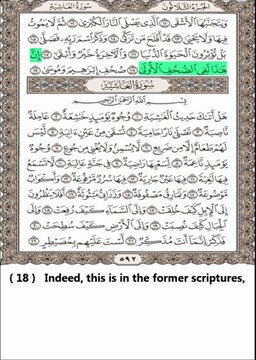 الجزء الثلاثون سورة الغاشية
وَيَتَجَنَّبُهَا ٱلْأَشْقَى ١١ ٱلَّذِى يَصْلَى ٱلنَّارَ ٱلْكُبْرَىٰ ١٢ ثُمَّ لَا يَمُوتُ
فِيهَا وَلَا يَحْيَىٰ ١٣ قَدْ أَفْلَحَ مَن تَزَكَّىٰ ١٤ وَذَكَرَ ٱسْمَ رَبِّهِۦ فَصَلَّىٰ ١٥
بَلْ تُؤْثِرُونَ ٱلْحَيَوٰةَ ٱلدُّنْيَا ١٦ وَٱلْءَاخِرَةُ خَيْرٌ وَأَبْقَىٰٓ ١٧ إِنَّ
هَٰذَا لَفِى ٱلصُّحُفِ ٱلْأُولَىٰ ١٨ صُحُفِ إِبْرَٰهِيمَ وَمُوسَىٰ ١٩
سُورَةُ الْغَاشِيَةِ
بِسْمِ ٱللَّهِ ٱلرَّحْمَٰنِ ٱلرَّحِيمِ
هَلْ أَتَىٰكَ حَدِيثُ ٱلْغَٰشِيَةِ ١ وُجُوهٌ يَوْمَئِذٍ خَٰشِعَةٌ ٢ عَامِلَةٌ
نَّاصِبَةٌ ٣ تَصْلَىٰ نَارًا حَامِيَةً ٤ تُسْقَىٰ مِنْ عَيْنٍ ءَانِيَةٍ ٥ لَّيْسَ
لَهُمْ طَعَامٌ إِلَّا مِن ضَرِيعٍ ٦ لَّا يُسْمِنُ وَلَا يُغْنِى مِن جُوعٍ ٧
وُجُوهٌ يَوْمَئِذٍ نَّاعِمَةٌ ٨ لِّسَعْيِهَا رَاضِيَةٌ ٩ فِى جَنَّةٍ عَالِيَةٍ ١٠ لَّا تَسْمَعُ
فِيهَا لَٰغِيَةً ١١ فِيهَا عَيْنٌ جَارِيَةٌ ١٢ فِيهَا سُرُرٌ مَّرْفُوعَةٌ ١٣ وَأَكْوَابٌ
مَّوْضُوعَةٌ ١٤ وَنَمَارِقُ مَصْفُوفَةٌ ١٥ وَزَرَابِىُّ مَبْثُوثَةٌ ١٦ أَفَلَا يَنظُرُونَ
إِلَى ٱلْإِبِلِ كَيْفَ خُلِقَتْ ١٧ وَإِلَى ٱلسَّمَآءِ كَيْفَ رُفِعَتْ ١٨ وَإِلَى
ٱلْجِبَالِ كَيْفَ نُصِبَتْ ١٩ وَإِلَى ٱلْأَرْضِ كَيْفَ سُطِحَتْ ٢٠
فَذَكِّرْ إِنَّمَآ أَنتَ مُذَكِّرٌ ٢١ لَّسْتَ عَلَيْهِم بِمُصَيْطِرٍ ٢٢
٥٩٢
( 18 ) Indeed, this is in the former scriptures,